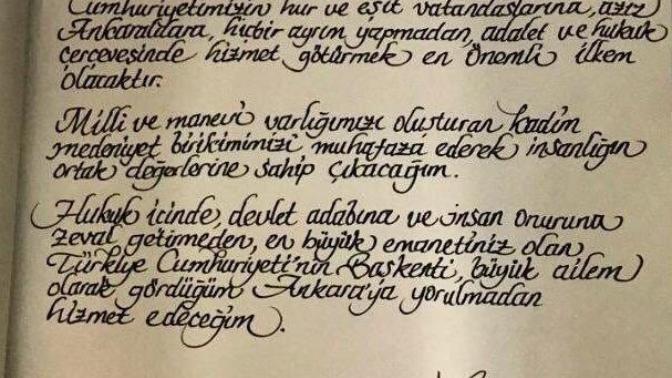 Cumhuriyetimizin hür ve eşit vatandaşlarına, aziz
Ankaralılara, hiçbir ayrım yapmadan, adalet ve hukuk
çerçevesinde hizmet götürmek en önemli ilkem
olacaktır.
Milli ve manevi varlığımızı oluşturan kadim
medeniyet birikimimizi muhafaza ederek insanlığın
ortak değerlerine sahip çıkacağım.
Hukuk içinde, devlet adabına ve insan onuruna
zeval getirmeden, en büyük emanetiniz olan
Türkiye Cumhuriyeti'nin Başkenti, büyük ailem
olarak gördüğüm Ankara'ya yorulmadan
hizmet edeceğim.